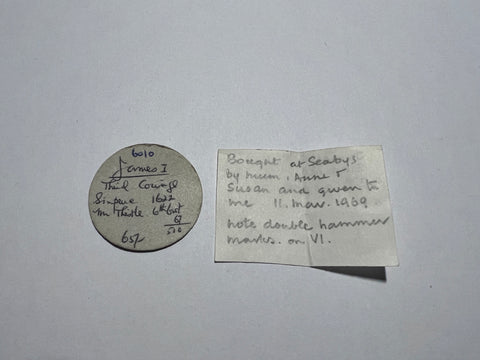 6010
James I
Third Coinage
Sixpence 1622
mm Thistle 6th bust
65/-
Bought at Seabys
by mum, Anne &
Susan and given to
me 11. Mar. 1969.
note double hammer
marks. on VI.